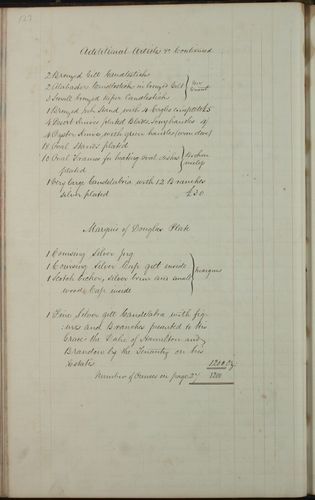 127
Additional Articles &c Continued
2 Bronzed Gilt Candlesticks
2 Alabaster Candlesticks in bronzed Gilt
2 Small bronzed taper Candlesticks
1 Bronzed Ink Stand with 4 Eagles complete
4 Desert Knives plated Blades
4 Oyster Knives with green handles (worn done)
10 Oval Stands plated
10 Oval Frames for heating oval dishes
plated
1 Very large Candelabria with 12 Branches
Silver plated £30
Marquis of Douglas Plate
1 Coursing Silver jug
1 Coursing Silver Cup gilt inside
1 Scotch bicker, silver brim and small
wood Cup inside
Marquis
1 Fine Silver gilt Candelabra with fig
ures and Branches presented to His
Grace the Duke of Hamilton and
Brandon by the Tenantry on his
Estates 1200 oz
Number of Ounces in page 27 1200